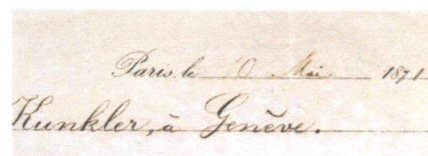 Paris, le 10 Mai 1871
Kunkler, à Genève.